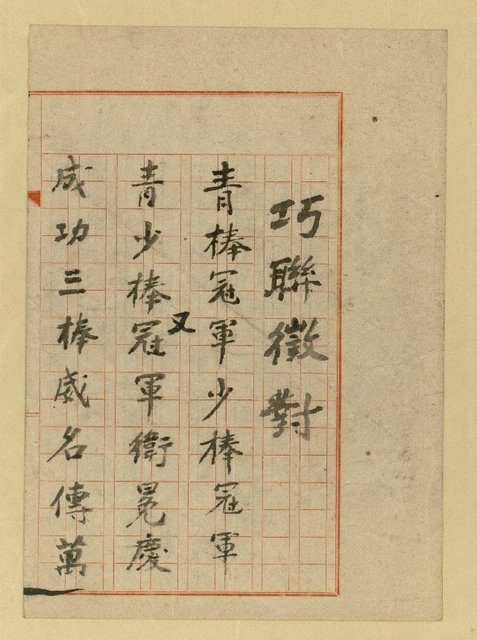 巧聯徵對
青棒冠軍少棒冠軍
青少棒冠又軍衛冕慶
成功三棒威名傳萬